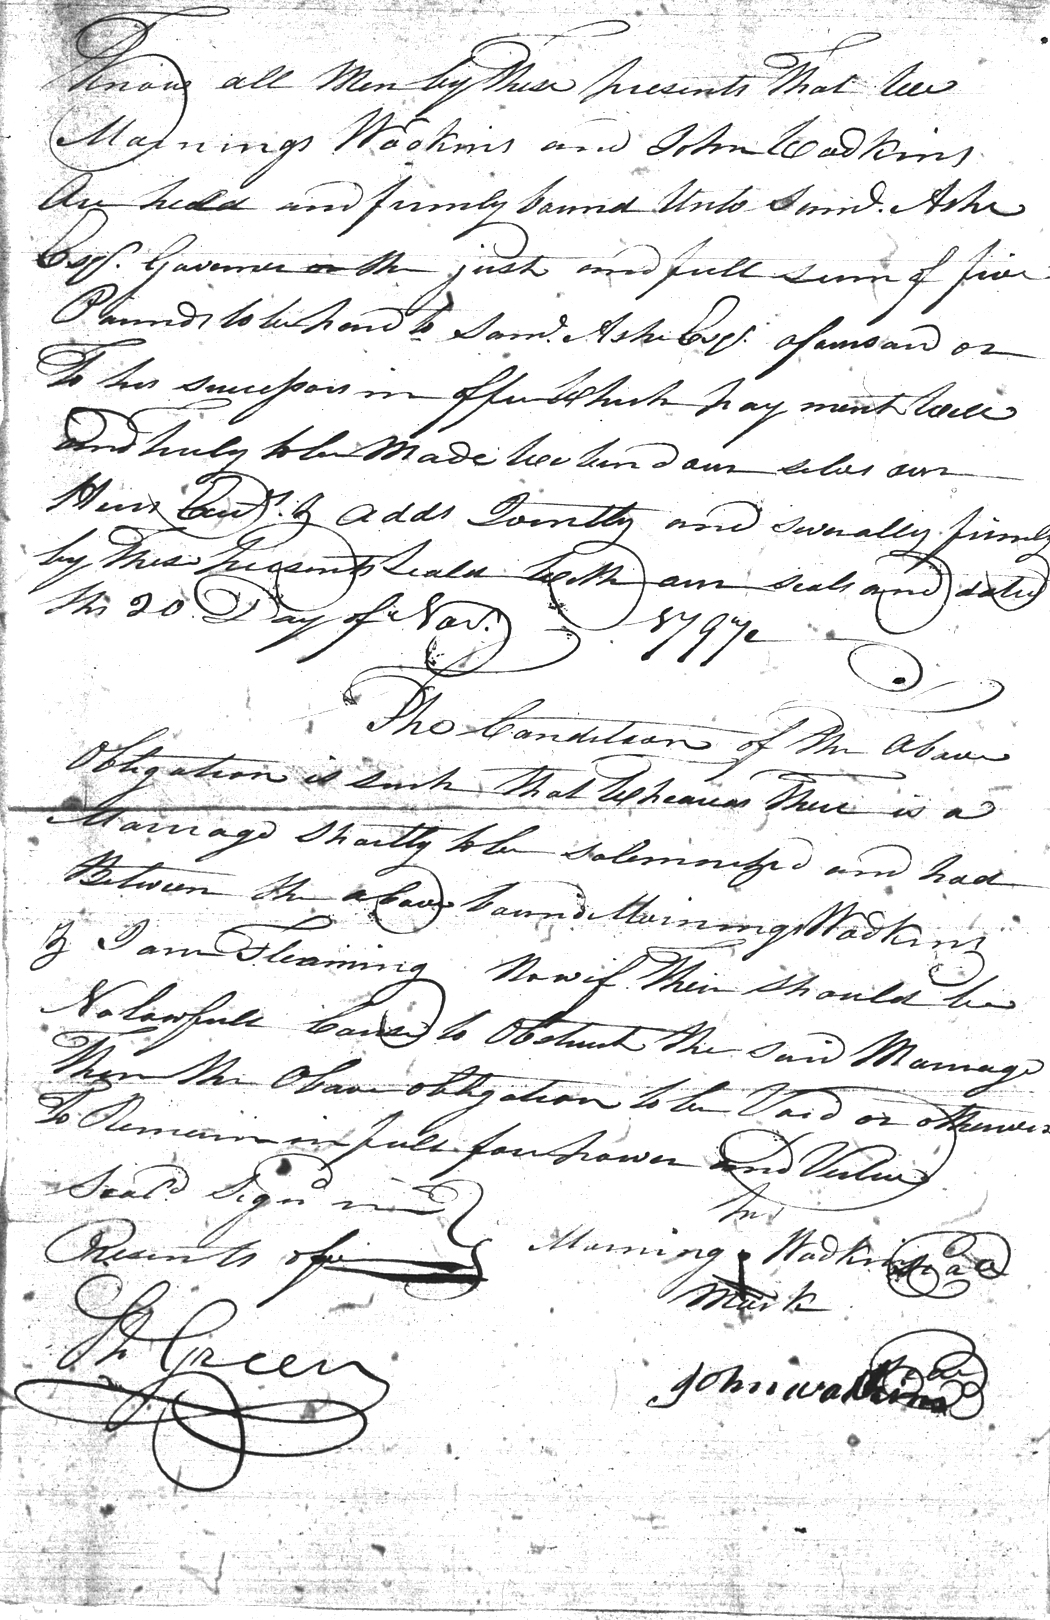 Know all Men by These presents That We
Mornings Wadkins and John Wadkins
Are held and firmly bound Unto Saml. Ashe
Esqr. Governer in the just and full sum of five
Pounds to be paid to Saml. Ashe Esqr. aforesaid or
To his successors in office Which pay ment Well
And truly to be Made We bind our selves our
Heirs Exrs. & Adds Jointly and severally firmly
by These Presents Seald With our seals and dated
this 20 Day of Nov. 1797
The Condition of the Above
Obligation is such That Wheareas There is a
Marriage shortly to be solemnized and had
Between the above bound Morning Wadkins
& Fleaming Now if Their should be
No lawfull Cause to Obstruct the said Marriage
Then the Above obligation to be Void or otherwise
To Remain in full force power and Vertue
Seal'd Sign'd in
Presents of
Morning Wadkins Seal
her
Mark
Green
John Wadkins